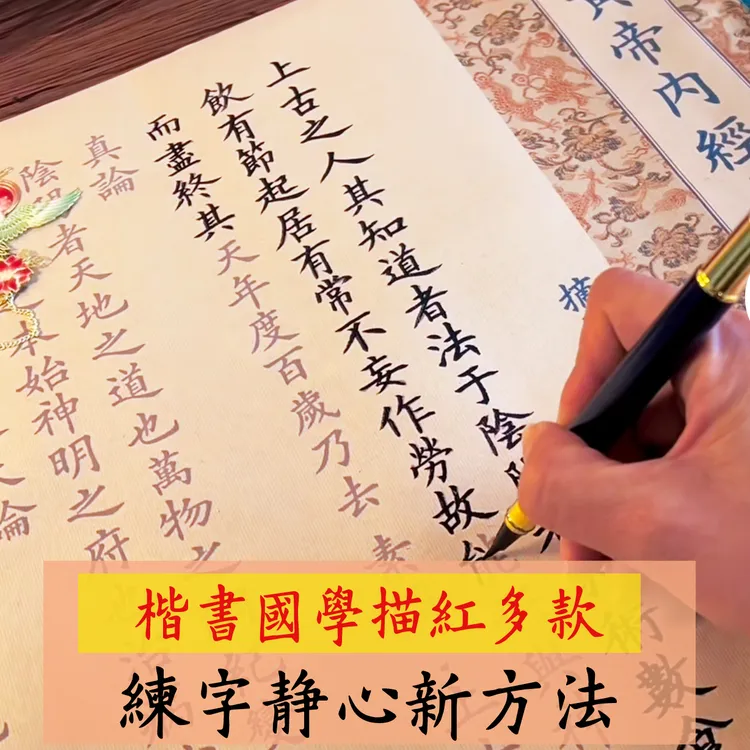 帝內經
摘
上古之人其知道者法于陰
術數
飲有節起居有常不妄作勞故
而盡終其天年度百歲乃去 素
真論
陰
者天地之道也萬物之
本始神明之府
論
楷書國學描紅多款
練字静心新方法